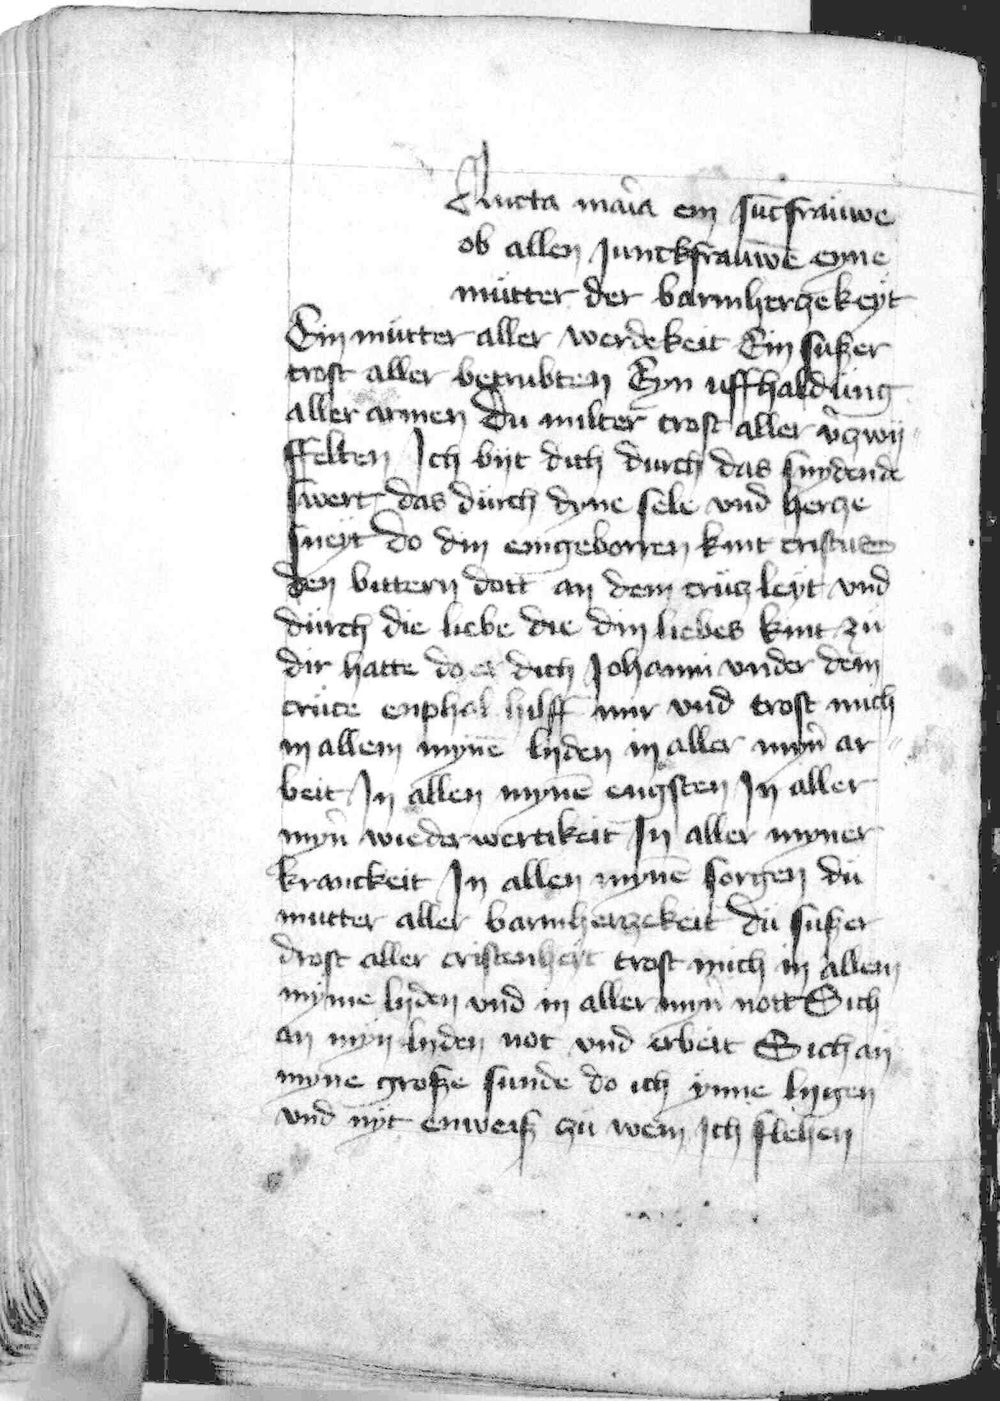 Aucta maria ein Juncfrauwe
ob allen Junckfrauwē eyne
mütter der barmherczekeyt
Ein mütter aller werdekeit Ein sußer
trost aller betrubten Eyn uffhaldüng
aller armen Du milter trost aller v̾czwij
ffelten Ich biit dich durch das snydende
swert das dürch dyne sele vnd hercze
sneyt do din eingeborren kint cristus
den bittern dott an dem crücz leyt vnd
dürch die liebe die din liebes kint zü
dir hatte do er dich Johanni vnder dem
crüce enphal hilff mir vnd trost mich
in allem mynē lijden in aller myn̾ ar
beit In allen mynē engsten In aller
myn̾ wiederwertikeit In aller myner
kranckeit In allen mynē sorgen dü
mutter aller barmherczekeit dü sußer
drost aller cristenheyt trost mich in allem
myme lijden vnd in aller myn̾ nott Sich
an myn lijden not vnd erbeit Sich an
myne große sunde do ich ynne lijgen
vnd nyt enweiß zü wem ich fliehen